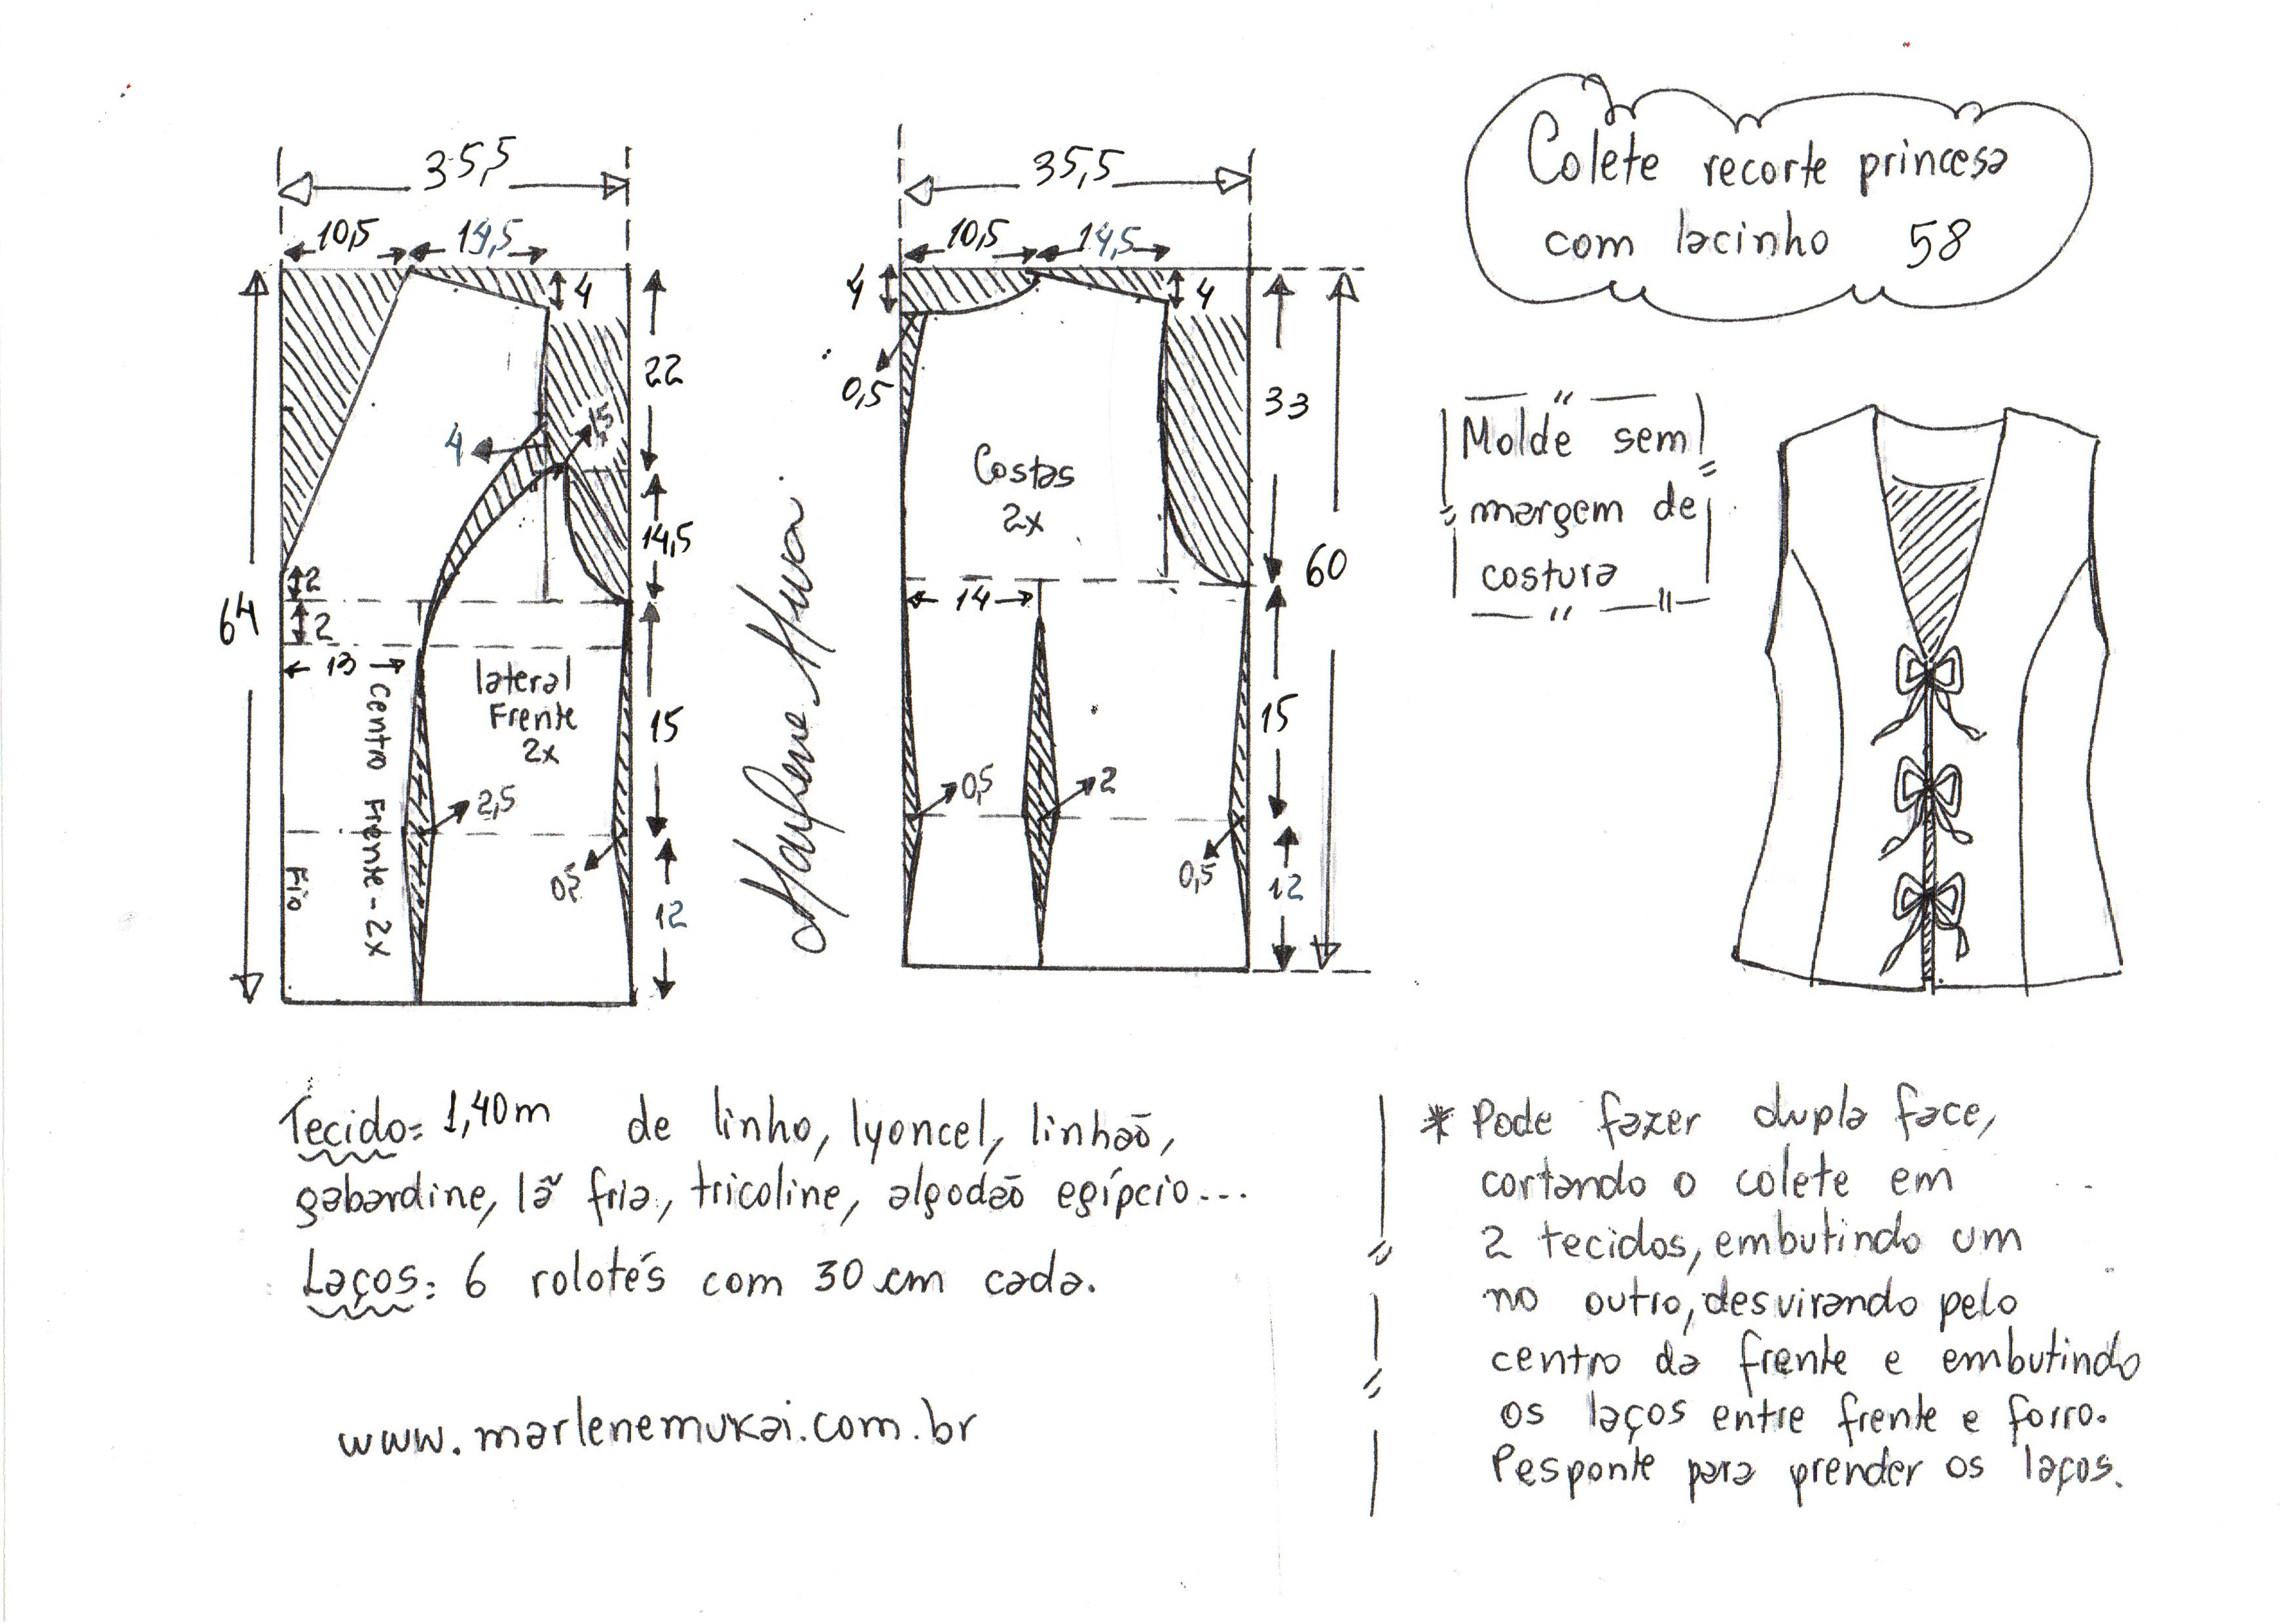 35,5
10,5 14,5
4
22
4
1,5
14,5
2
2
64
13
lateral
Frente
2x
Centro Frente - 2x
15
2,5
0,5
Fio
12
35,5
10,5 14,5
4
4
0,5
33
Costas
2x
60
14
15
0,5
2
0,5
12
Colete recorte princesa
com lacinho 58
Molde sem
margem de
costura
Tecido= 1,40m de linho, lyoncel, linhaõ,
gabardine, lã fria, tricoline, algodaõ egípcio...
Laços: 6 rolotés com 30 cm cada.
www.marlenemukai.com.br
* Pode fazer dupla face,
cortando o colete em
2 tecidos, embutindo um
no outro, desvirando pelo
centro da frente e embutindo
os laços entre frente e forro.
Pesponte para prender os laços.